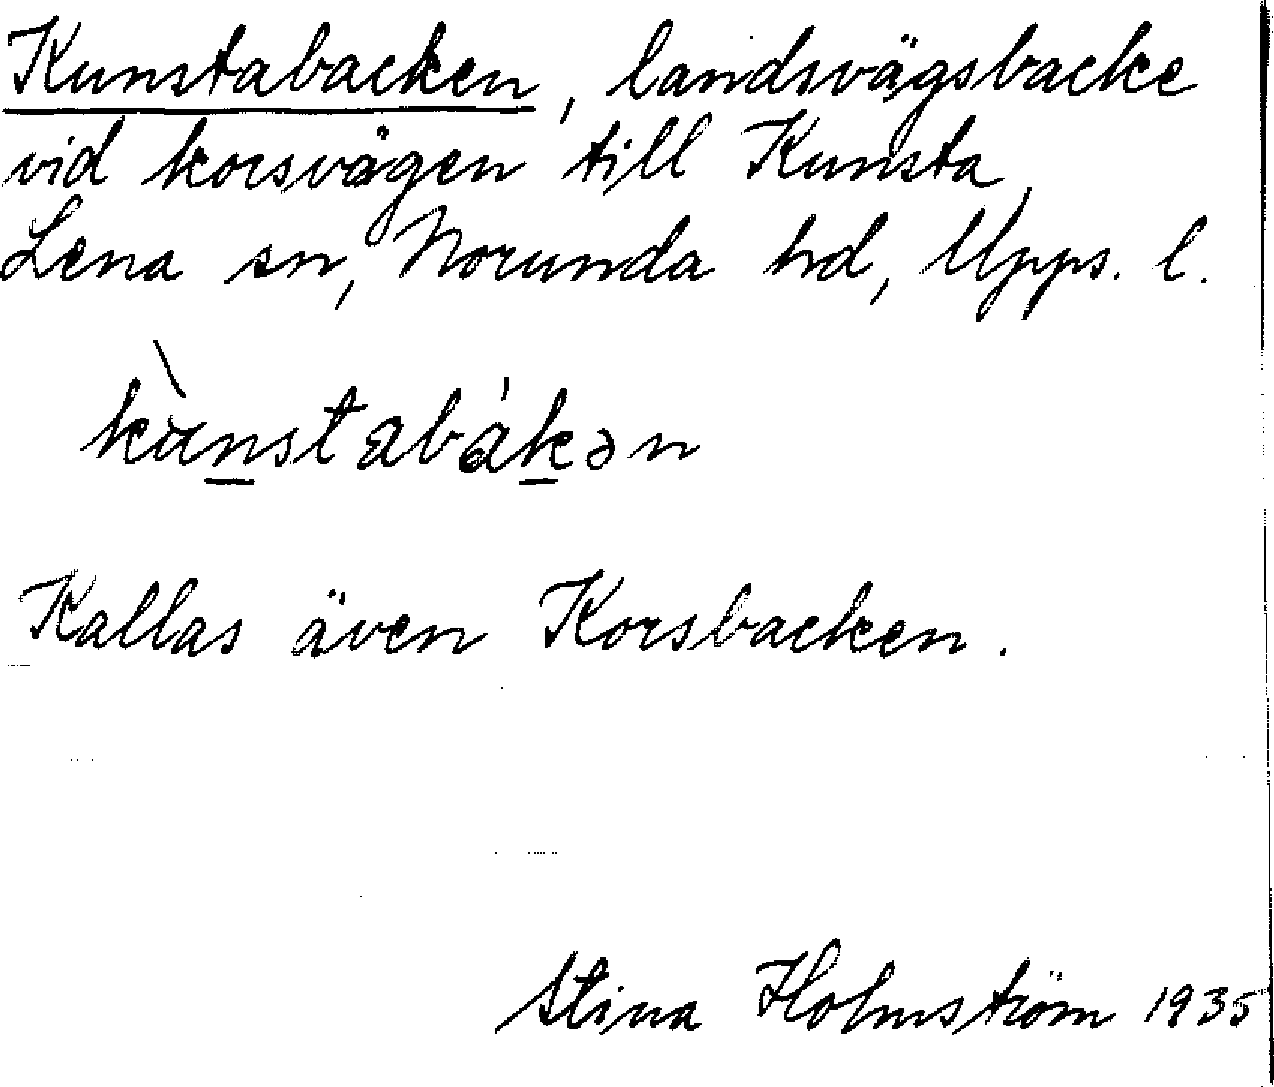 Kunstabacken, landsvägsbacke
vid korsvägen till Kunsta,
Lena sn, Norunda hd, Upps. l.
kùnstabákən
Kallas även Korsbacken.
Stina Holmström 1935